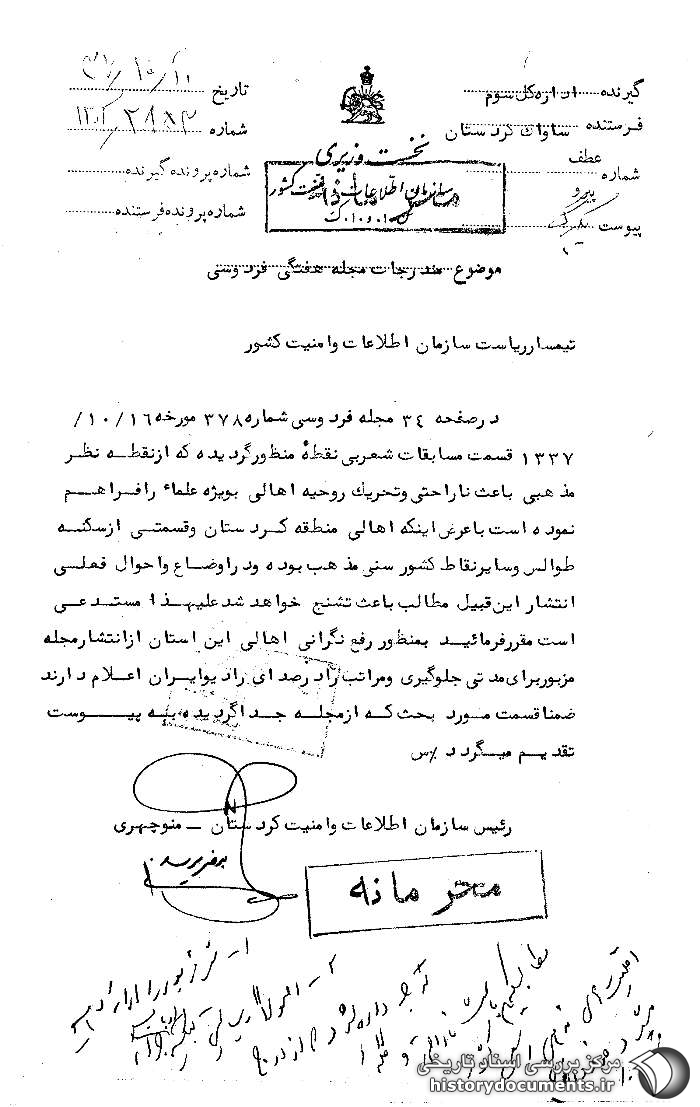 گیرنده اداره کل سوم
فرستنده ساواک کردستان
عطف
شماره
پیرو
پیوست یکبرگ
تاریخ ۳۷/۱۰/۲۱
شماره ۲۹۸۳
شماره پرونده گیرنده
شماره پرونده فرستنده
نخست وزیری
سازمان اطلاعات و امنیت کشور
س.ا.و.ا.ک
موضوع مندرجات مجله هفتگی فردوسی
تیمسار ریاست سازمان اطلاعات و امنیت کشور
در صفحه ۳۴ مجله فردوسی شماره ۳۷۸ مورخه ۱۰/۱۶/
۱۳۳۷ قسمت مسابقات شعر بی نقطه منظور گردیده که از نقطه نظر
مذهبی باعث ناراحتی و تحریک روحیه اهالی بویژه علماء را فراهم
نموده است با عرض اینکه اهالی منطقه کردستان و قسمتی از سکنه
طوالس و سایر نقاط کشور سنی مذهب بوده و در اوضاع و احوال فعلی
انتشار این قبیل مطالب باعث تشنج خواهد شد علیهذا مستدعی
است مقرر فرمائید بمنظور رفع نگرانی اهالی این استان از انتشار مجله
مزبور برای مدتی جلوگیری و مراتب را در صدای رادیو ایران اعلام دارند
ضمنا قسمت مورد بحث که از مجله جدا گردیده به پیوست
تقدیم میگردد %س
رئیس سازمان اطلاعات و امنیت کردستان - منوچهری
بعرض برسد
محرمانه
مرکز بررسی اسناد تاریخی
historydocuments.ir